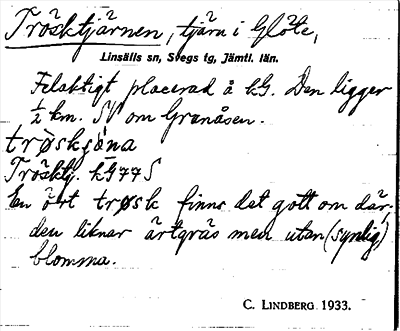 Trösktjärnen, tjärn i Glöte,
Linsälls sn, Svegs tg, Jämtl. län.
Felaktigt placerad å kG. Den ligger
½ km. SV om Granåsen.
trøskjøna
Trösktj. kG 77 S
En ört trøsk finns det gott om där,
den liknar ärtgräs men utan (synlig)
blomma.
C. LINDBERG 1933.